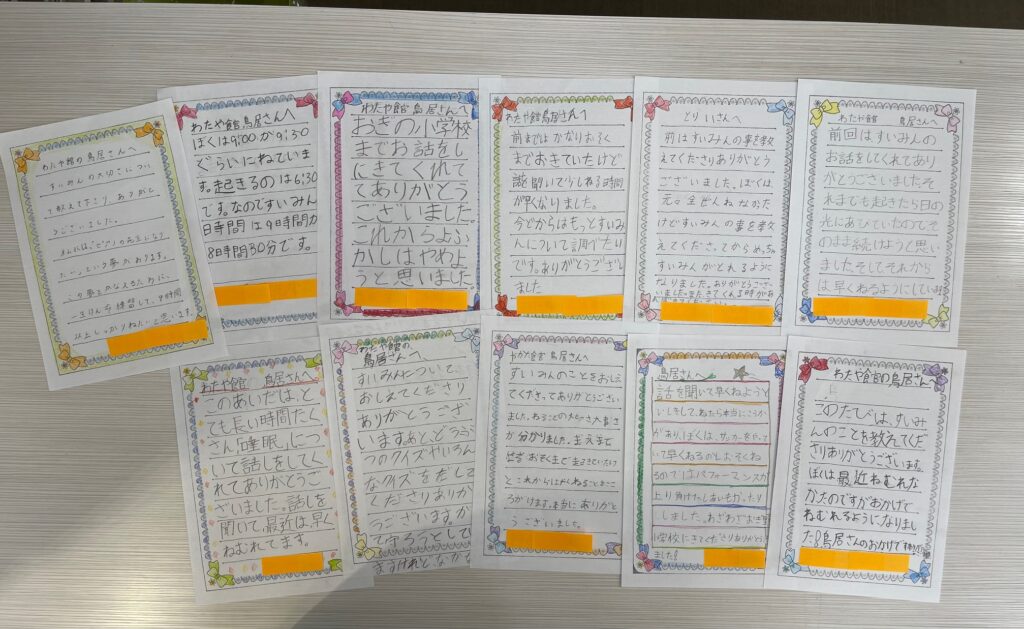 わたや館の鳥居さんへ
すいみんの大切さについ
て教えて下さり、ありがとう
ございました。
という夢があります。
この夢をかなえるために、
練習して、9時間
以上しっかりねたいと思います。
わたや館 鳥居さんへ
ぼくは9:00か9:30
ぐらいにねていま
す。起きるのは6:30
です。なのですいみん
時間は9時間か
8時間30分です。
わたや館 鳥居さんへ
おぎの小学校
までお話をし
にきてくれて
てありがとう
ございました。
これからよふ
かしはやめよ
うと思いました。
わたや館鳥居さんへ
前まではかなりおそく
までおきていたけど
話を聞いてからねる時間
が早くなりました。
今どからはもっとすいみ
んについて調べたい
です。ありがとうござい
ました
とりいさんへ
前はすいみんの事を教
えてくださりありがとう
ございました。ぼくは、
元々全ぜんねなかった
けどすいみんの事を教
えてくださってからめっちゃ
すいみんがとれるように
なりました。ありがとうござ
いました。
わたや館 鳥居さんへ
前回はすいみんの
お話をしてくれてあり
がとうございました。そ
れまでも起きたら日の
光にあびていたのでそ
のまま続けようと思い
ました。そしてそれから
は早くねるようにしています
わたや館 鳥居さんへ
このあいだは、と
ても長い時間たく
さん「睡眠」につ
いて話しをしてく
れてありがとうご
ざいました。話しを
聞いて、最近は早く
ねむれてます。
わたや館の
鳥居さんへ
すいみんについて、
おしえてくださり
ありがとうござ
います。あと、どう
つのクイズやいろん
なクイズをだして
くださりありが
うございます。が
て守ろうとしてい
ますけれど、なかな
わたや館 鳥居さんへ
すいみんのことをおしえ
てくださってありがとうござい
ました。ねることの大切さ大事さ
が分かりました。
おそくまで生きていたけ
ど、これからははやくねることをここ
ろがけます。本当にありがと
うございました。
鳥居さんへ
話を聞いて早くねようと
いしきして、ねたら本当にこうか
があり、ぼくは、サッカーをやって
いて早くねるのと、よくね
るのではパフォーマンスが
上り
しました。わざわざおぎの
小学校にきてくださりありがとう
ました!
わたや館の鳥居さんへ
このたびは、すいみ
んのことを教えてくだ
さりありがとうございます。
ぼくは最近ねむれな
かったのですがおかげで
ねむれるようになりまし
た!鳥居さんのおかげです